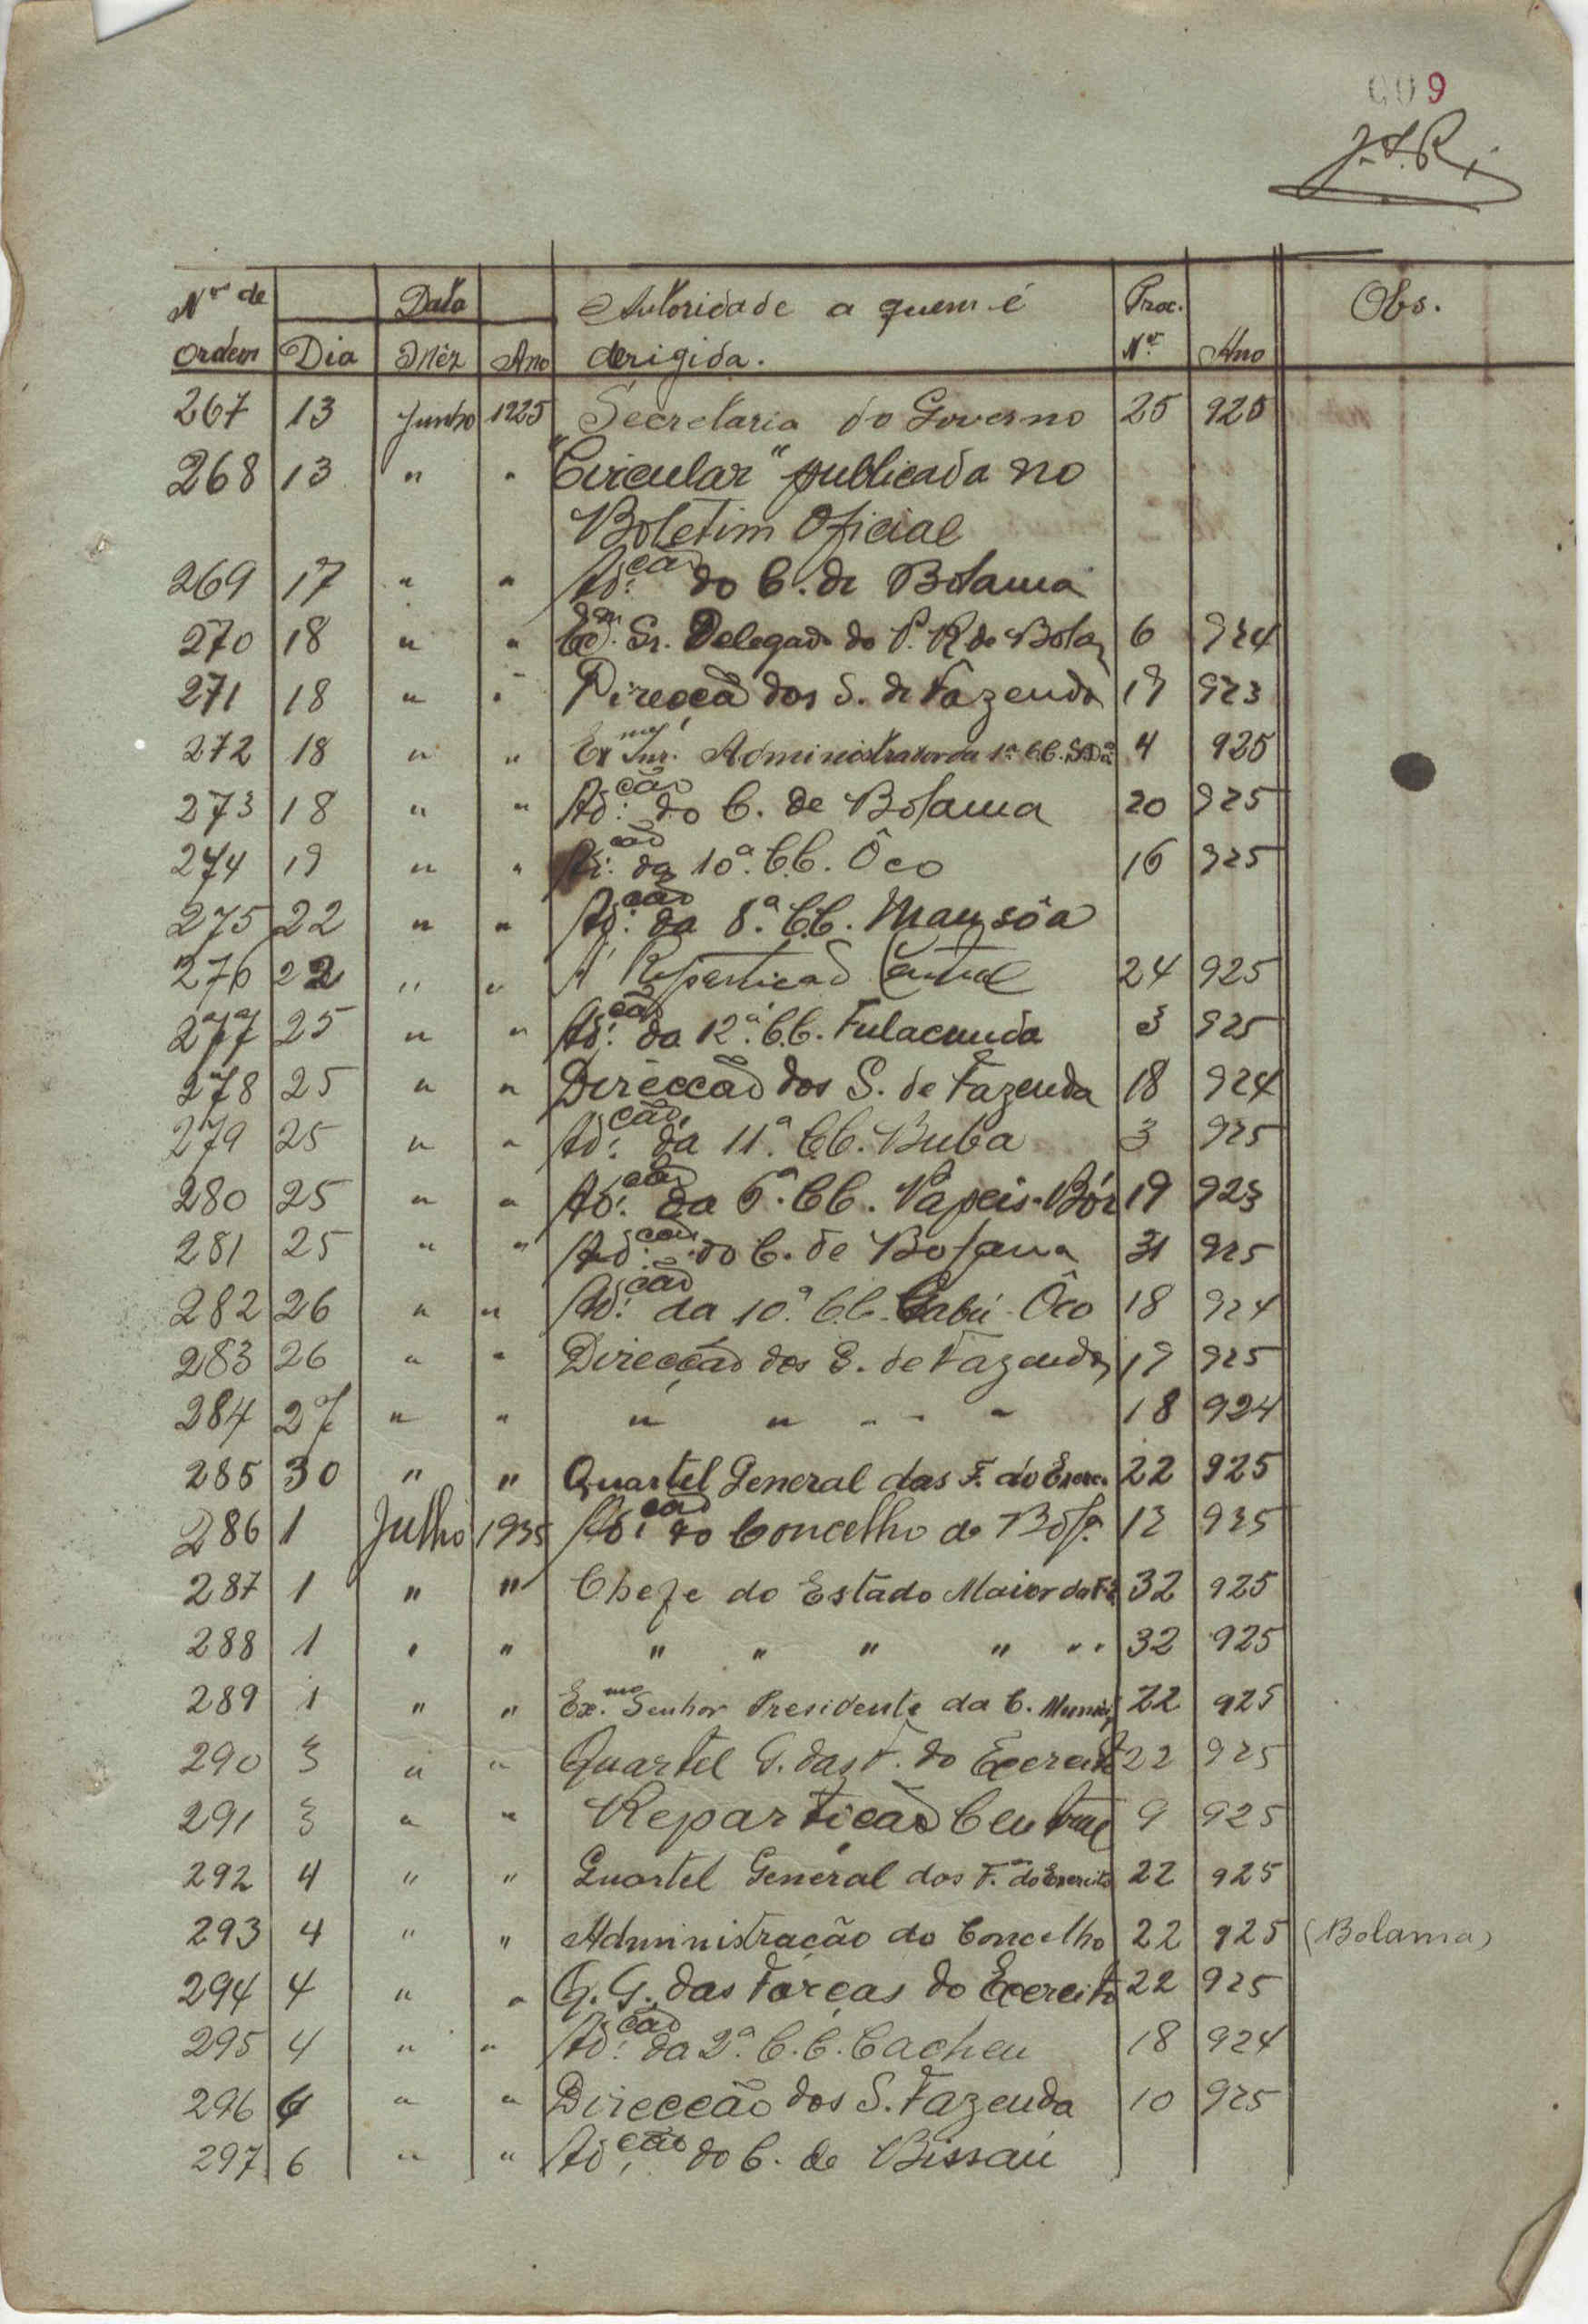 009
J. S. R.
Nr de Data Autoridade a quem é Proc. Obs.
ordem Dia Mêz Ano derigida. Nr. Ano
267 13 Junho 1925 Secretaria do Governo 25 925
268 13 " " "Circular" publicada no
Boletim Oficial
269 17 " " Ad.ção do C. de Bolama
270 18 " " Sr. Delegado do P. R. de Bola 6 924
271 18 " " Direcçã dos S. de Fazenda 19 923
272 18 " " Exmo Snr. Administrador da 1ª C.C. 4 925
273 18 " " Ad.ção do C. de Bolama 20 925
274 19 " " Ad.ção da 10ª C.C. Ôco 16 925
275 22 " " Ad.ção da 8.ª C.C. Mansôa
276 22 " " Á Repartição Central 24 925
277 25 " " Ad.ção da 12.ª C.C. Fulacunda 3 925
278 25 " " Direcção dos S. de Fazenda 18 924
279 25 " " Ad.ção da 11.ª C.C. Buba 3 925
280 25 " " Ad.ção da 6.ª C.C. Papeis-Bór 19 923
281 25 " " Ad.ção do C. de Bolama 31 925
282 26 " " Ad.ção da 10.ª C.C. Gabú-Ôco 18 924
283 26 " " Direcção dos S. de Fazenda 19 925
284 27 " " " " " " " 18 924
285 30 " " Quartel General das F. do Exerc. 22 925
286 1 Julho 1935 Ad.ção do Concelho de Bolª. 12 925
287 1 " " Chefe do Estado Maior da 32 925
288 1 " " " " " " " " 32 925
289 1 " " Ex.mo Senhor Presidente da C. Munici 22 925
290 3 " " Quartel G. das F. do Exercito 22 925
291 3 " " Repartição Central 9 925
292 4 " " Quartel General das F. do Exercito 22 925
293 4 " " Administração do Concelho 22 925 (Bolama)
294 4 " " Q. G. das Forças do Exercito 22 925
295 4 " " Ad.ção da 2ª. C.C. Cacheu 18 924
296 6 " " Direcção dos S. Fazenda 10 925
297 6 " " Ad.ção do C. de Bissau